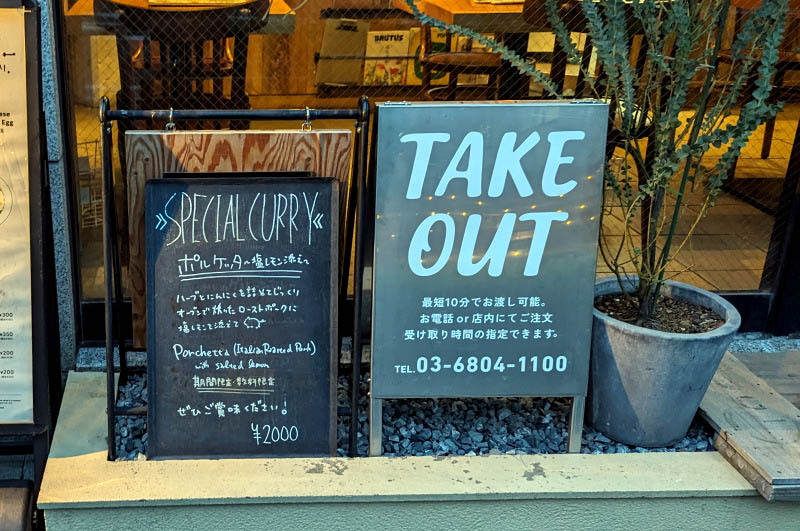 »SPECIAL CURRY«
ポルケッタ〜塩レモン添え〜
ハーブとにんにくを詰めてじっくり
オーブンで焼いたローストポークに
塩レモンを添えて
Porchetta (Italian Roasted Pork)
with salted lemon
期間限定・数料限定
ぜひご賞味ください!
¥2000
TAKE
OUT
最短10分でお渡し可能。
お電話 or 店内にてご注文
受け取り時間の指定できます。
TEL.03-6804-1100
BRUTUS
Egg
¥300
¥350
¥200
¥200